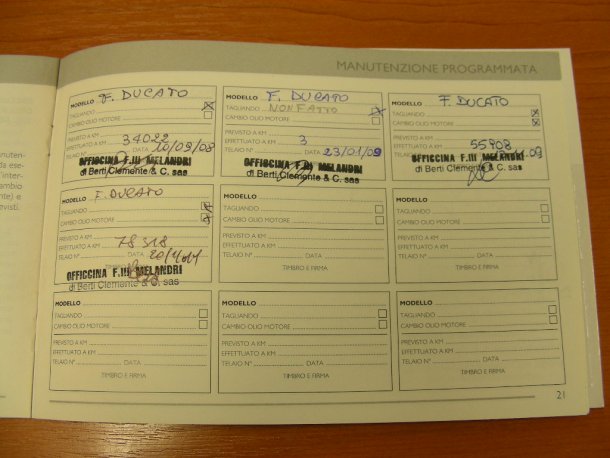 MANUTENZIONE PROGRAMMATA
MODELLO F. DUCATO
TAGLIANDO
CAMBIO OLIO MOTORE
PREVISTO A KM
EFFETTUATO A KM 34022
TELAIO N° DATA 10/09/08
OFFICINA F.lli MELANDRI
di Berti Clemente & C. sas
MODELLO F. DUCATO
TAGLIANDO NON FATTO
CAMBIO OLIO MOTORE
PREVISTO A KM
EFFETTUATO A KM 3
TELAIO N° DATA 23/01/09
OFFICINA F.lli MELANDRI
di Berti Clemente & C. sas
MODELLO F. DUCATO
TAGLIANDO
CAMBIO OLIO MOTORE
PREVISTO A KM
EFFETTUATO A KM 55908
TELAIO N°
OFFICINA F.lli MELANDRI
di Berti Clemente & C. sas
MODELLO F. DUCATO
TAGLIANDO
CAMBIO OLIO MOTORE
PREVISTO A KM
EFFETTUATO A KM 78318
TELAIO N° DATA
OFFICINA F.lli MELANDRI
di Berti Clemente & C. sas
MODELLO
TAGLIANDO
CAMBIO OLIO MOTORE
PREVISTO A KM
EFFETTUATO A KM
TELAIO N° DATA
TIMBRO E FIRMA
MODELLO
TAGLIANDO
CAMBIO OLIO MOTORE
PREVISTO A KM
EFFETTUATO A KM
TELAIO N° DATA
TIMBRO E FIRMA
MODELLO
TAGLIANDO
CAMBIO OLIO MOTORE
PREVISTO A KM
EFFETTUATO A KM
TELAIO N° DATA
TIMBRO E FIRMA
MODELLO
TAGLIANDO
CAMBIO OLIO MOTORE
PREVISTO A KM
EFFETTUATO A KM
TELAIO N° DATA
TIMBRO E FIRMA
MODELLO
TAGLIANDO
CAMBIO OLIO MOTORE
PREVISTO A KM
EFFETTUATO A KM
TELAIO N° DATA
TIMBRO E FIRMA
21